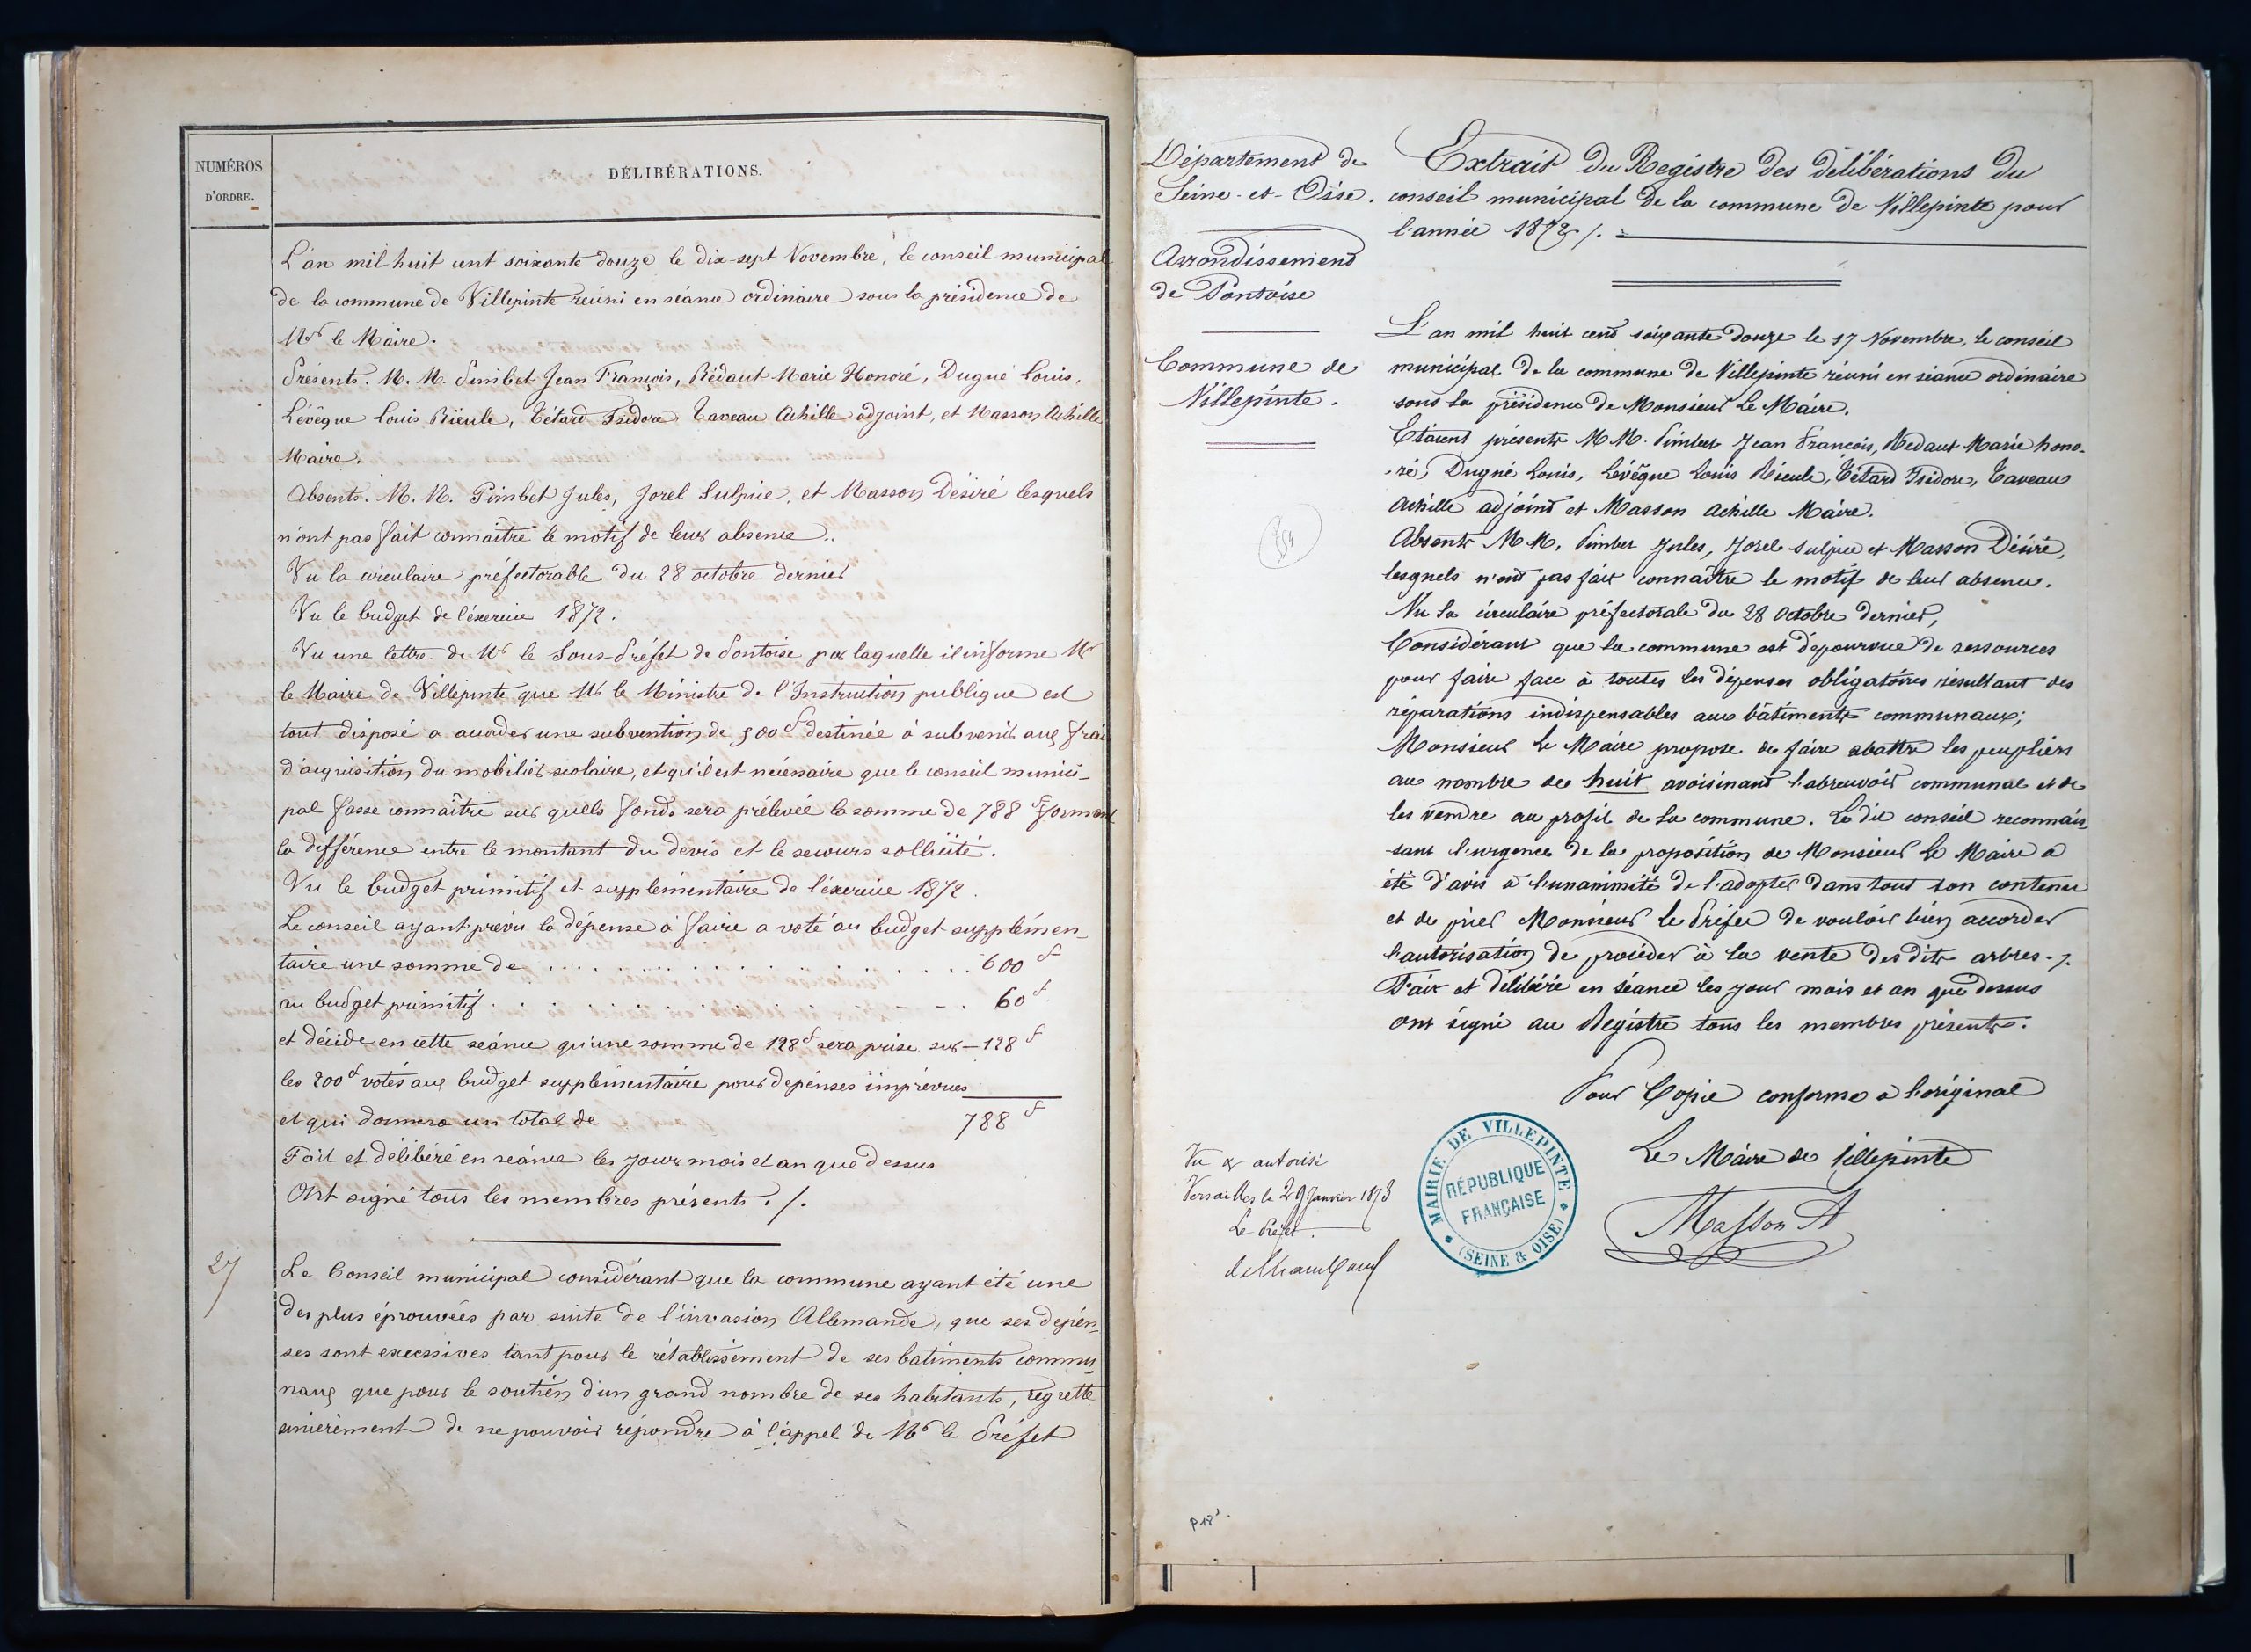 NUMÉROS
D'ORDRE.
DÉLIBÉRATIONS.
L'an mil huit cent soixante douze le dix-sept Novembre, le conseil municipal
de la commune de Villepinte reuni en séance ordinaire sous la présidence de
Mr le Maire.
Présents. M. M. Pimbet Jean François, Bédaut Marie Honoré, Dugué Louis,
Lévêque Louis Rieule, Tétard Isidore Taveau Achille adjoint, et Masson Achille
Maire.
Absents. M. M. Pimbet Jules, Jorel Sulpice, et Masson Désiré lesquels
n'ont pas fait connaître le motif de leur absence..
Vu la circulaire préfectorable du 28 octobre dernier
Vu le budget de l'éxercice 1872.
Vu une lettre de Mr le Sous-Préfet de Pontoise par laquelle il informe Mr
le Maire de Villepinte que Mr le Ministre de l'Instruction publique est
tout disposé a accorder une subvention de 500f destinée à subvenir aux frais
d'acquisition du mobilier scolaire, et qu'il est nécessaire que le conseil munici-
pal fasse connaître sur quels fonds sera prélevée la somme de 788f formant
la différence entre le montant du devis et le secours sollicité.
Vu le budget primitif et supplémentaire de l'éxercice 1872.
Le conseil ayant prévu la dépense à faire a voté au budget supplémen-
taire une somme de . . . . . . . . . . . . 600f
au budget primitif . . . . . . . . . . . . 60f
et décide en cette séance qu'une somme de 128f sera prise sur — 128f
les 200f votés aux budget supplémentaire pour depénses imprévues
et qui donnera un total de 788f
Fait et délibéré en séance les jours mois et an que dessus
Ont signé tous les membres présents. /.
27
Le Conseil municipal considérant que la commune ayant été une
des plus éprouvées par suite de l'invasion Allemande, que ses dépén-
ses sont excessives tant pour le rétablissement de ses batiments commu-
naux que pour le soutien d'un grand nombre de ses habitants, regrette
sincèrement de ne pouvoir répondre à l'appel de Mr le Préfet
Département de
Seine-et-Oise.
Arrondissement
de Pontoise
Commune de
Villepinte.
Extrait du Registre des délibérations du
conseil municipal de la commune de Villepinte pour
l'année 1872. /. =
L'an mil huit cent soixante douze le 17 Novembre, le conseil
municipal de la commune de Villepinte réuni en séance ordinaire
sous la présidence de Monsieur Le Maire.
Etaient présents M M. Pimbet Jean François, Bedaut Marie hono-
-ré, Dugué Louis, Lévêque Louis Rieule, Tétard Isidore, Taveau
Achille adjoint et Masson Achille Maire.
Absents M M. Pimbet Jules, Jorel Sulpice et Masson Désiré,
lesquels n'ont pas fait connaître le motif de leur absence.
Vu la circulaire préfectorale du 28 Octobre dernier,
Considérant que la commune est dépourvue de ressources
pour faire face à toutes les dépenses obligatoires résultant des
réparations indispensables aux bâtiments communaux;
Monsieur Le Maire propose de faire abattre les peupliers
au nombre de huit avoisinant l'abreuvoir communal et de
les vendre au profit de la commune. Le dit conseil reconnais
-sant l'urgence de la proposition de Monsieur Le Maire a
été d'avis à l'unanimité de l'adopter dans tout son contenu
et de prier Monsieur le Préfet de vouloir bien accorder
l'autorisation de procéder à la vente des dits arbres. /.
Fait et délibéré en séance les jour mois et an que dessus
ont signé au Registre tous les membres présents.
Pour Copie conforme a l'original
Le Maire de Villepinte
Masson A
MAIRIE DE VILLEPINTE
RÉPUBLIQUE
FRANÇAISE
(SEINE & OISE)
Vu & autorisé
Versailles le 29 Janvier 1873
Le Préfet.
p 18